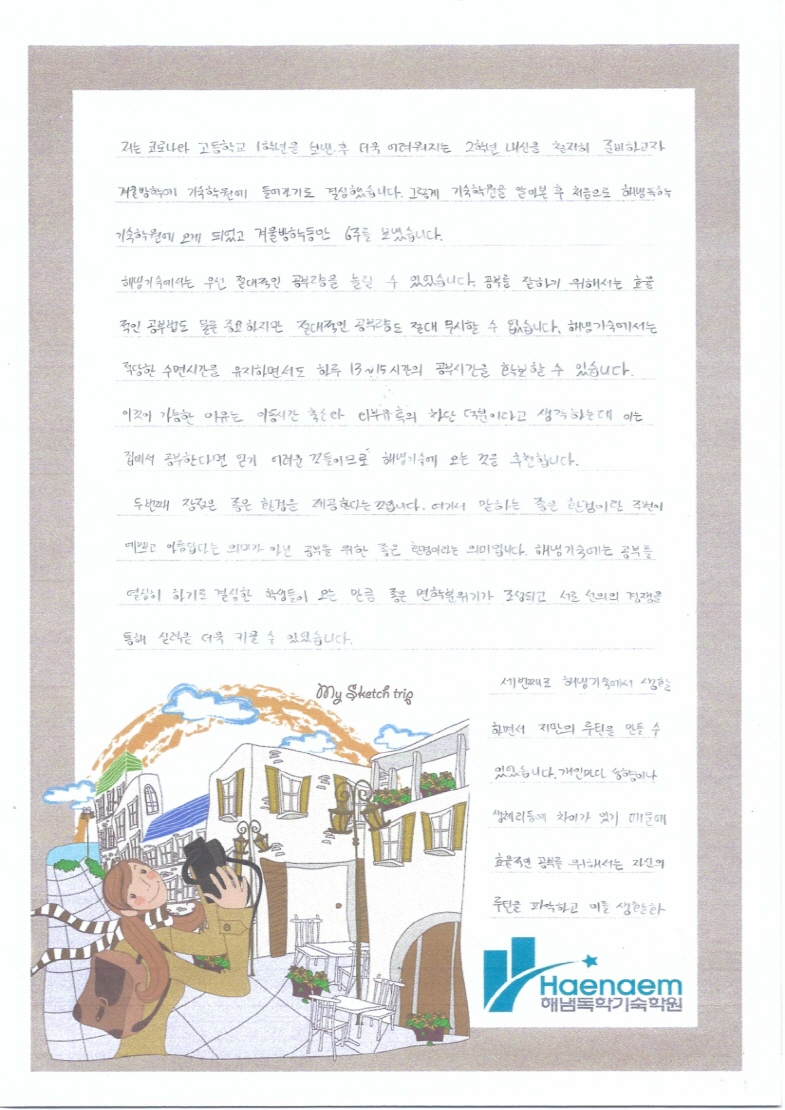 저는 코로나와 고등학교 1학년을 보낸 후 더욱 어려워지는 2학년 내신을 철저히 준비하고자
겨울방학에 기숙학원에 들어가기로 결심했습니다. 그렇게 기숙학원을 알아본 후 처음으로 해냄독학
기숙학원에 오게 되었고 겨울방학동안 6주를 보냈습니다.
해냄기숙에서는 우선 절대적인 공부량을 늘릴 수 있었습니다. 공부를 잘하기 위해서는 효율
적인 공부법도 물론 중요하지만 절대적인 공부량도 절대 무시할 수 없습니다. 해냄기숙에서는
적당한 수면시간을 유지하면서도 하루 13~15시간의 공부시간을 확보할 수 있습니다.
이것이 가능한 이유는 이동시간 축소와 외부유혹의 차단 덕분이라고 생각하는데 이는
집에서 공부한다면 얻기 어려운 것들이므로 해냄기숙에 오는 것을 추천합니다.
두번째 장점은 좋은 환경을 제공한다는 것입니다. 여기서 말하는 좋은 환경이란 주변이
예쁘고 아름답다는 의미가 아닌 공부를 위한 좋은 환경이라는 의미입니다. 해냄기숙에는 공부를
열심히 하기로 결심한 학생들이 오는 만큼 좋은 면학분위기가 조성되고 서로 선의의 경쟁을
통해 실력을 더욱 키울 수 있었습니다.
세번째로 해냄기숙에서 생활
하면서 저만의 루틴을 만들 수
있었습니다. 개인마다 성향이나
생체리듬에 차이가 있기 때문에
효율적인 공부를 위해서는 자신의
루틴을 파악하고 이를 생활화
My Sketch trip
Haenaem
해냄독학기숙학원